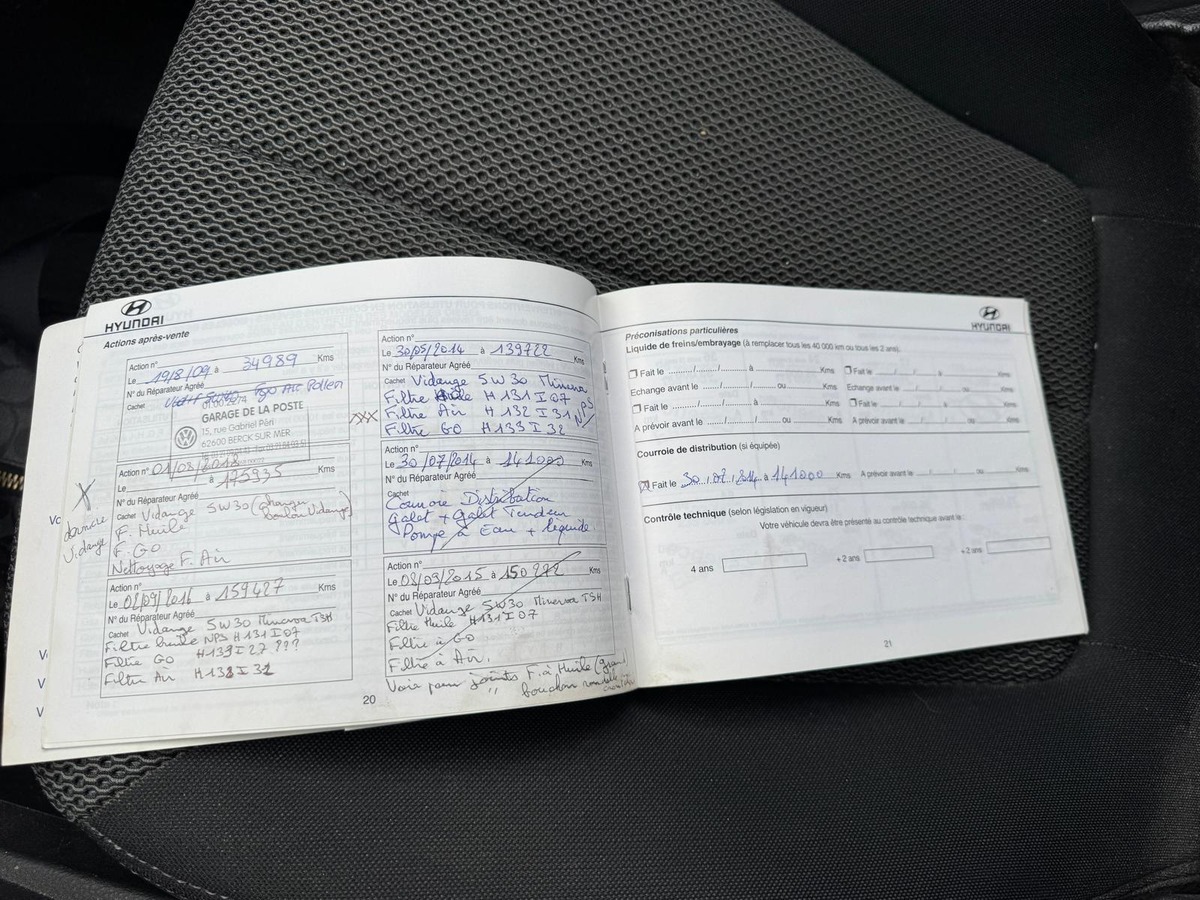 HYUNDAI
Actions après-vente
Action n°
Le 19/8/09 à 34989 Kms
N° du Réparateur Agréé
Cachet Pollen
GARAGE DE LA POSTE
15, rue Gabriel Péri
62600 BERCK SUR MER
Action n°
Le 01/08/2018 à 175935
N° du Réparateur Agréé
Cachet Vidange 5W30 (changer
boulon Vidange)
F. Huile
F. GO
Nettoyage F. Air
X
dernière
Vidange
Action n°
Le 02/09/2016 à 159427 Kms
N° du Réparateur Agréé
Cachet Vidange 5W30 Minerva TSH
Filtre huile NPS H131I07
Filtre GO H133I27 ???
Filtre Air H132I32
Action n°
Le 30/05/2014 à 139722 Kms
N° du Réparateur Agréé
Cachet Vidange 5W30 Minerva
Filtre Huile H131I07
XXX Filtre Air H132I31 NPS
Filtre GO H133I32
Action n°
Le 30/07/2014 à 141000
N° du Réparateur Agréé
Cachet
Courroie Distribution
Galet + Galet Tendeur
Pompe à Eau + liquide
Action n°
Le 03/03/2015 à 150222 Kms
N° du Réparateur Agréé
Cachet Vidange 5W30 Minerva TSH
Filtre Huile H131I07
Filtre à GO
Filtre à Air.
Voir pour joints F. à Huile (grand)
" bouchon rondelle
20
HYUNDAI
Préconisations particulières
Liquide de freins/embrayage (à remplacer tous les 40 000 km ou tous les 2 ans).
Fait le ........../......./........ à ............ Kms Fait le ......../......./........ à ............ Kms
Echange avant le ......./......./........ ou ............ Kms Echange avant le ......./......./........ ou ............ Kms
Fait le ........../......./........ à ............ Kms Fait le ......../......./........ à ............ Kms
A prévoir avant le ......./......./........ ou ............ Kms A prévoir avant le ......./......./........ ou ............ Kms
Courroie de distribution (si équipée)
Fait le 30/07/2014 à 141000 Kms A prévoir avant le ......./......./........ ou ............ Kms
Contrôle technique (selon législation en vigueur)
Votre véhicule devra être présenté au contrôle technique avant le :
4 ans + 2 ans + 2 ans
21